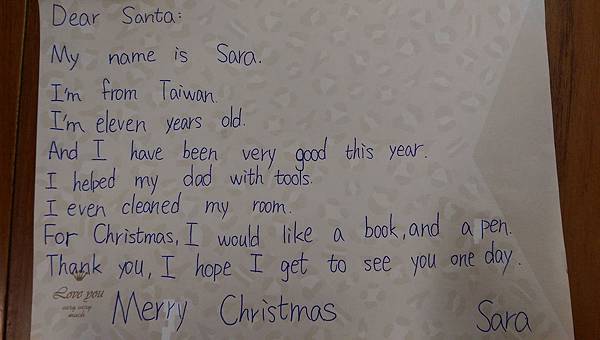 Dear Santa:
My name is Sara.
I'm from Taiwan.
I'm eleven years old.
And I have been very good this year.
I helped my dad with tools.
I even cleaned my room.
For Christmas, I would like a book, and a pen.
Thank you, I hope I get to see you one day.
Love you
very very
much
Merry Christmas
Sara